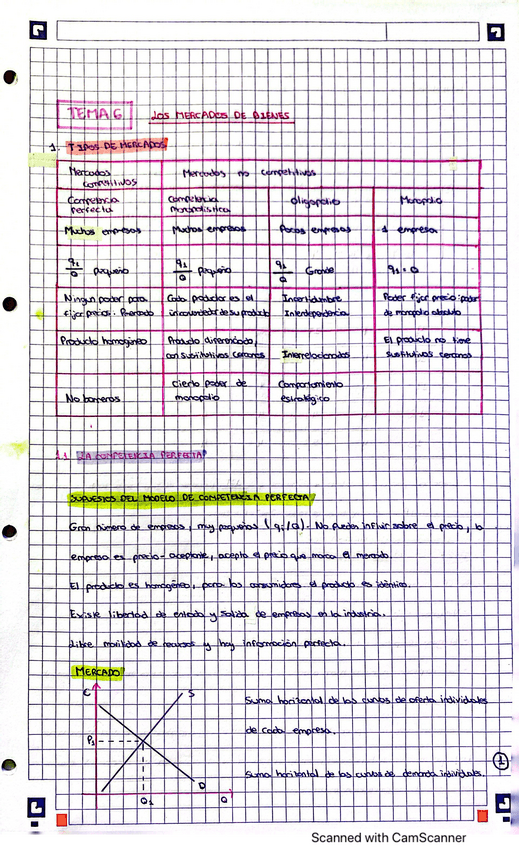 TEMA 6
LOS MERCADOS DE BIENES
1. TIPOS DE MERCADOS
Mercados competitivos
Mercados no competitivos
Competencia Perfecta
Competencia Monopolística
Oligopolio
Monopolio
Muchas empresas
Muchas empresas
Pocas empresas
1 empresa
q1/Q pequeño
q1/Q pequeño
q1/Q Grande
q1 = Q
Ningun poder para
fijar precios.
Cada productor es el
de su producto
Incertidumbre
Interdependencia
Poder fijar precio: poder
de monopolio absoluto
Producto homogéneo
Producto diferenciado,
con sustitutivos cercanos
Interrelacionados
El producto no tiene
sustitutivos cercanos
No barreras
Cierto poder de
monopolio
Comportamiento
estratégico
1.1 LA COMPETENCIA PERFECTA
SUPUESTOS DEL MODELO DE COMPETENCIA PERFECTA
Gran número de empresas, muy pequeñas (qi/Q). No pueden influir sobre el precio, la
empresa es precio-aceptante, acepta el precio que marca el mercado
El producto es homogéneo, para los consumidores el producto es idéntico.
Existe libertad de entrada y salida de empresas en la industria.
Libre movilidad de recursos y hay información perfecta.
MERCADO
€
S
Suma horizontal de las curvas de oferta individuales
de cada empresa.
P1
D
Suma horizontal de las curvas de demanda individuales.
Q1
Q
1
Scanned with CamScanner